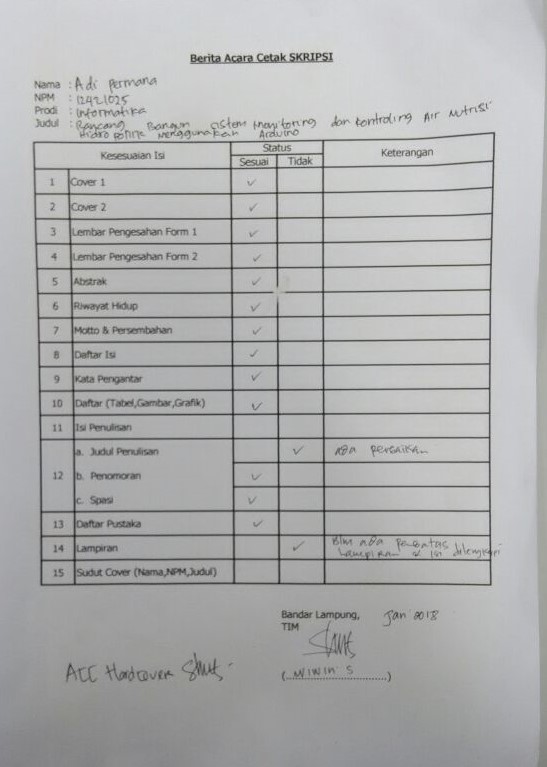 Berita Acara Cetak SKRIPSI
Nama : Adi Permana
NPM : 12421025
Prodi : Informatika
Judul : Rancang Bangun sistem Monitoring dan Kontroling Air Nutrisi
Hidroponik Menggunakan Arduino
Kesesuaian Isi Status Keterangan
Sesuai Tidak
1 Cover 1 ✓
2 Cover 2 ✓
3 Lembar Pengesahan Form 1 ✓
4 Lembar Pengesahan Form 2 ✓
5 Abstrak ✓
6 Riwayat Hidup ✓
7 Motto & Persembahan ✓
8 Daftar Isi ✓
9 Kata Pengantar ✓
10 Daftar (Tabel,Gambar,Grafik) ✓
11 Isi Penulisan
12 a. Judul Penulisan ✓ ada perbaikan
b. Penomoran ✓
c. Spasi ✓
13 Daftar Pustaka ✓
14 Lampiran ✓ Blm ada pembatas
Lampiran & isi dilengkapi
15 Sudut Cover (Nama,NPM,Judul)
Bandar Lampung, Jan 2018
TIM
ACC Hardcover
(Wiwin S)